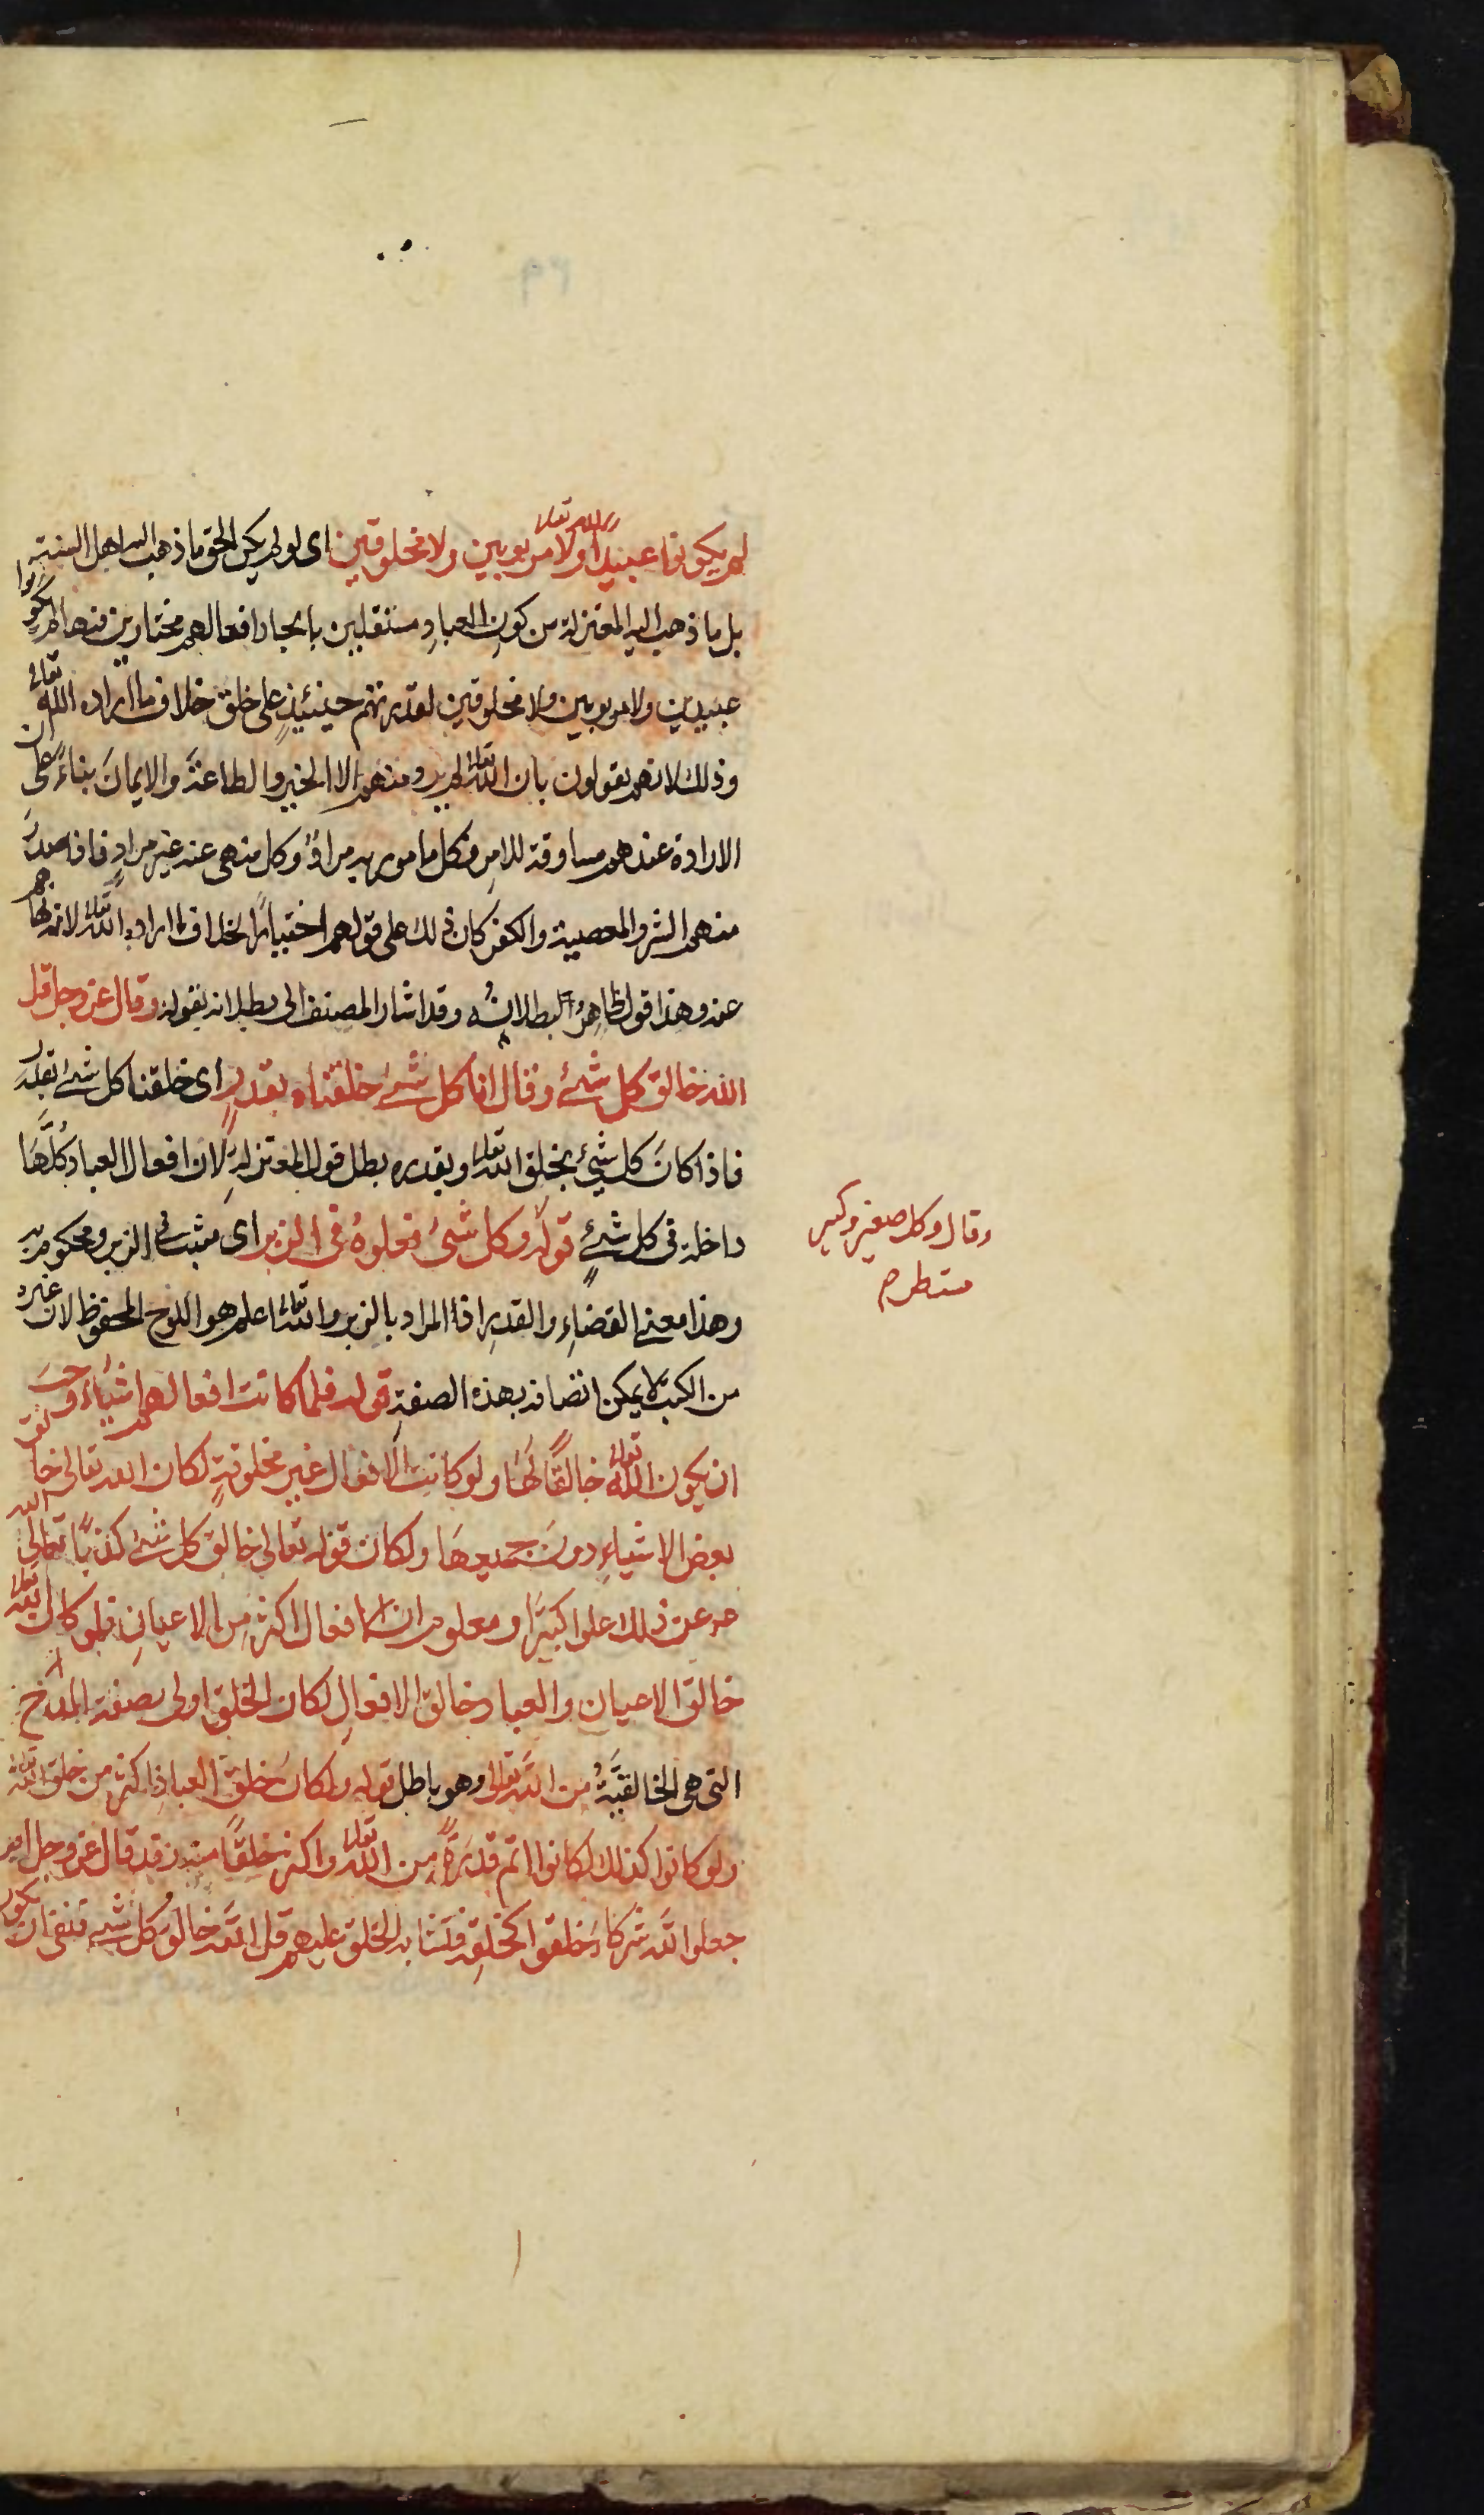 لم يكونوا عبيدًا لله تعالى ولا مربوبين ولا مخلوقين اى لو لم يكن الحق ما ذهب اليه اهل السنة
بل ما ذهب اليه المعتزلة من كونِ العبادِ مستقلين بايجاد افعالهم مختارين فيها لم يكونوا
عبيدين ولا مربوبين ولا مخلوقين لقدرتهم حينئيذٍ على خلق خلاف ما اراده الله تعالى
وذلك لانهم يقولون بان الله تعالى لم يرد منهم الا الخير والطاعةَ والايمانَ بناءً على ان
الارادة عندهم مساوقة للامرِ فكل مامور به مرادٌ وكل منهى عنه غير مرادٍ فاذا صدرَ
منهم الشر والمعصية والكفر كان ذلك على قولهم اختيارًا بخلاف ما اراده الله تعالى لانه نهاهم
عنه وهذا قول ظاهرُ البطلانِ وقد اشار المصنف الى بطلانه بقوله وقال عز وجل قل
الله خالق كل شئ وقال انا كل شئ خلقناه بقدرٍ اى خلقنا كل شئ بقدر
فاذا كانَ كل شيئ بخلق الله تعالى وبقدره بطل قول المعتزلةِ لان افعال العباد كُلَّهَا
داخلة فى كل شئٍ قوله وكل شئ فعلوهُ فى الزبر اى مثبت فى الزبر ومحكوم به
وهذا معنى القضاءِ والقدرِ اذا المراد بالزبر والله تعالى اعلم هو اللوح المحفوظ لان غيره
من الكتب لا يمكن اتصافه بهذه الصفةِ قوله فلما كانت افعالهم اشياء وجبَ
ان يكون الله تعالى خالقًا لها ولو كانت الافعال غير مخلوقةٍ لكان الله تعالى خالق
بعض الاشياءِ دونَ جميعهَا ولكان قوله تعالى خالق كل شئ كذبًا تعالى الله
عن ذلك علوا كبيرًا ومعلوم ان الافعال اكثر من الاعيانِ فلو كان الله تعالى
خالق الاعيان والعباد خالق الافعالِ لكان الخلق اولى بصفة المدح
التى هى الخالقيَّةُ من الله تعالى وهو باطل قوله ولكان خلق العبادِ اكثر من خلق الله تعالى
ولو كانوا كذلك لكانوا اتم قدرةً من الله تعالى واكثر خلقًا منه وقد قال عز وجل ام
جعلوا لله شركاءَ خلقوا كخلقِه فتشابه الخلق عليهم قل الله خالقُ كل شئ فنفى ان يكون
وقال وكل صغير وكبير
مستطر م